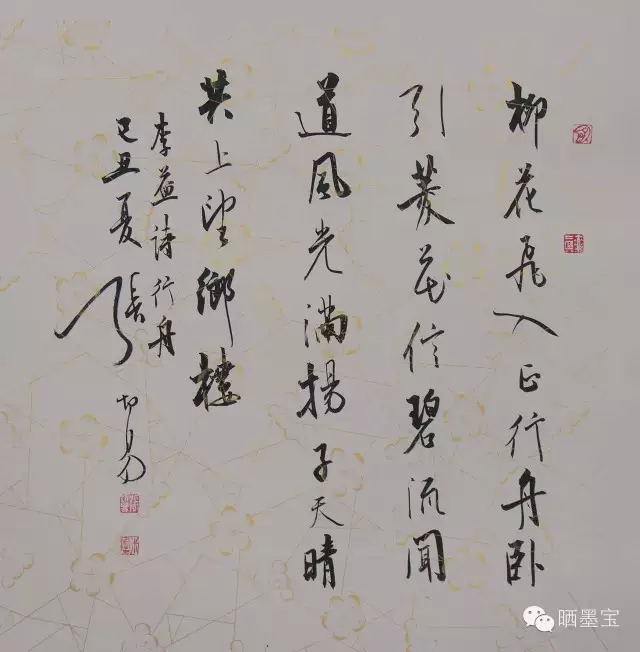 柳花飛入正行舟卧
引菱花信碧流聞
道風光滿揚子天晴
共上望鄉樓
李益詩行舟
己丑夏張
晒墨宝